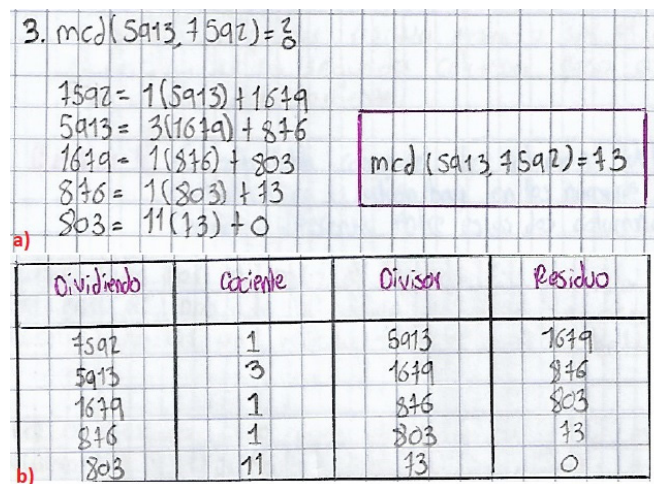 3. mcd(5913, 7592)=?
7592= 1(5913)+1679
5913= 3(1679)+876
1679= 1(876)+803
876= 1(803)+73
803= 11(73)+0
mcd(5913,7592)=73
a)
Dividiendo Cociente Divisor Residuo
7592 1 5913 1679
5913 3 1679 876
1679 1 876 803
876 1 803 73
803 11 73 0
b)